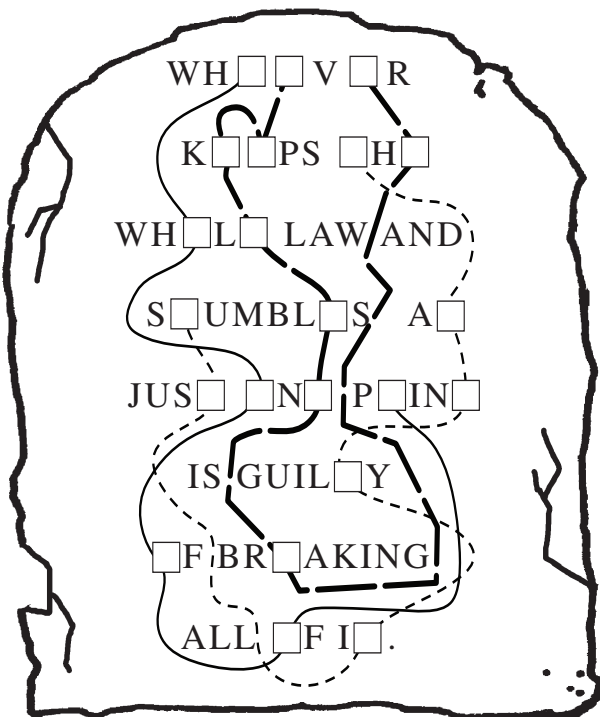 WH□□V□R
K□□PS □H□
WH□L□ LAW AND
S□UMBL□S A□
JUS□ □N□ P□IN□
IS GUIL□Y
□F BR□AKING
ALL □F I□.